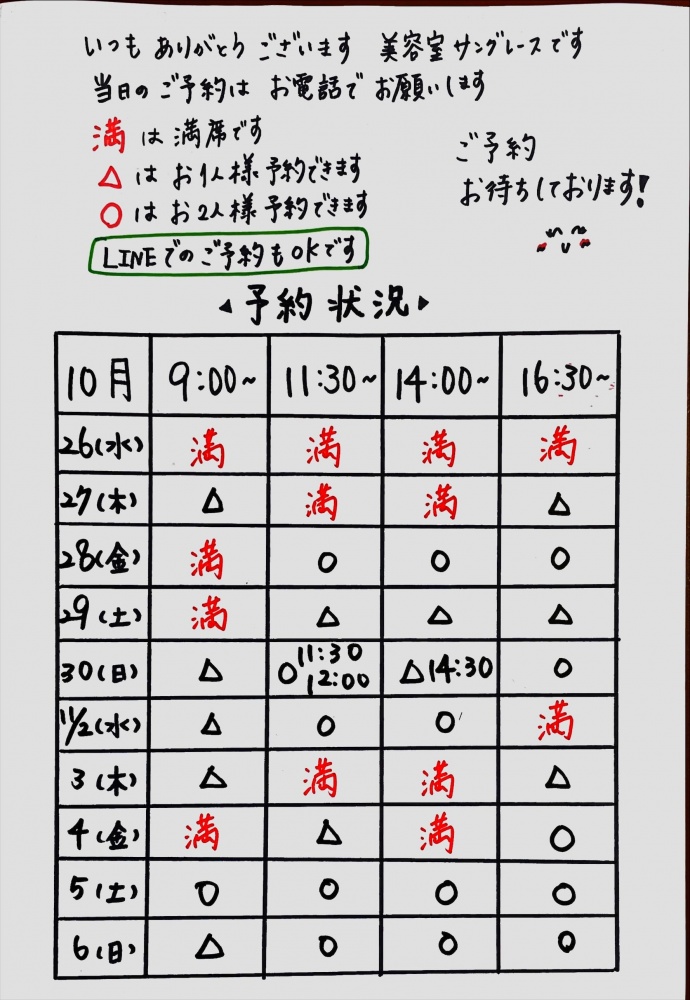 いつも ありがとう ございます 美容室 サングレースです
当日の ご予約は お電話で お願いします
満 は 満席です
△ は お1人様 予約できます
○ は お2人様 予約できます
ご予約
お待ちしております!
LINEでのご予約もOKです
予約状況
10月 9:00~ 11:30~ 14:00~ 16:30~
26(水) 満 満 満 満
27(木) △ 満 満 △
28(金) 満 ○ ○ ○
29(土) 満 △ △ △
30(日) △ ○11:30 12:00 △14:30 ○
11/2(水) △ ○ ○ 満
3(木) △ 満 満 △
4(金) 満 △ 満 ○
5(土) ○ ○ ○ ○
6(日) △ ○ ○ ○